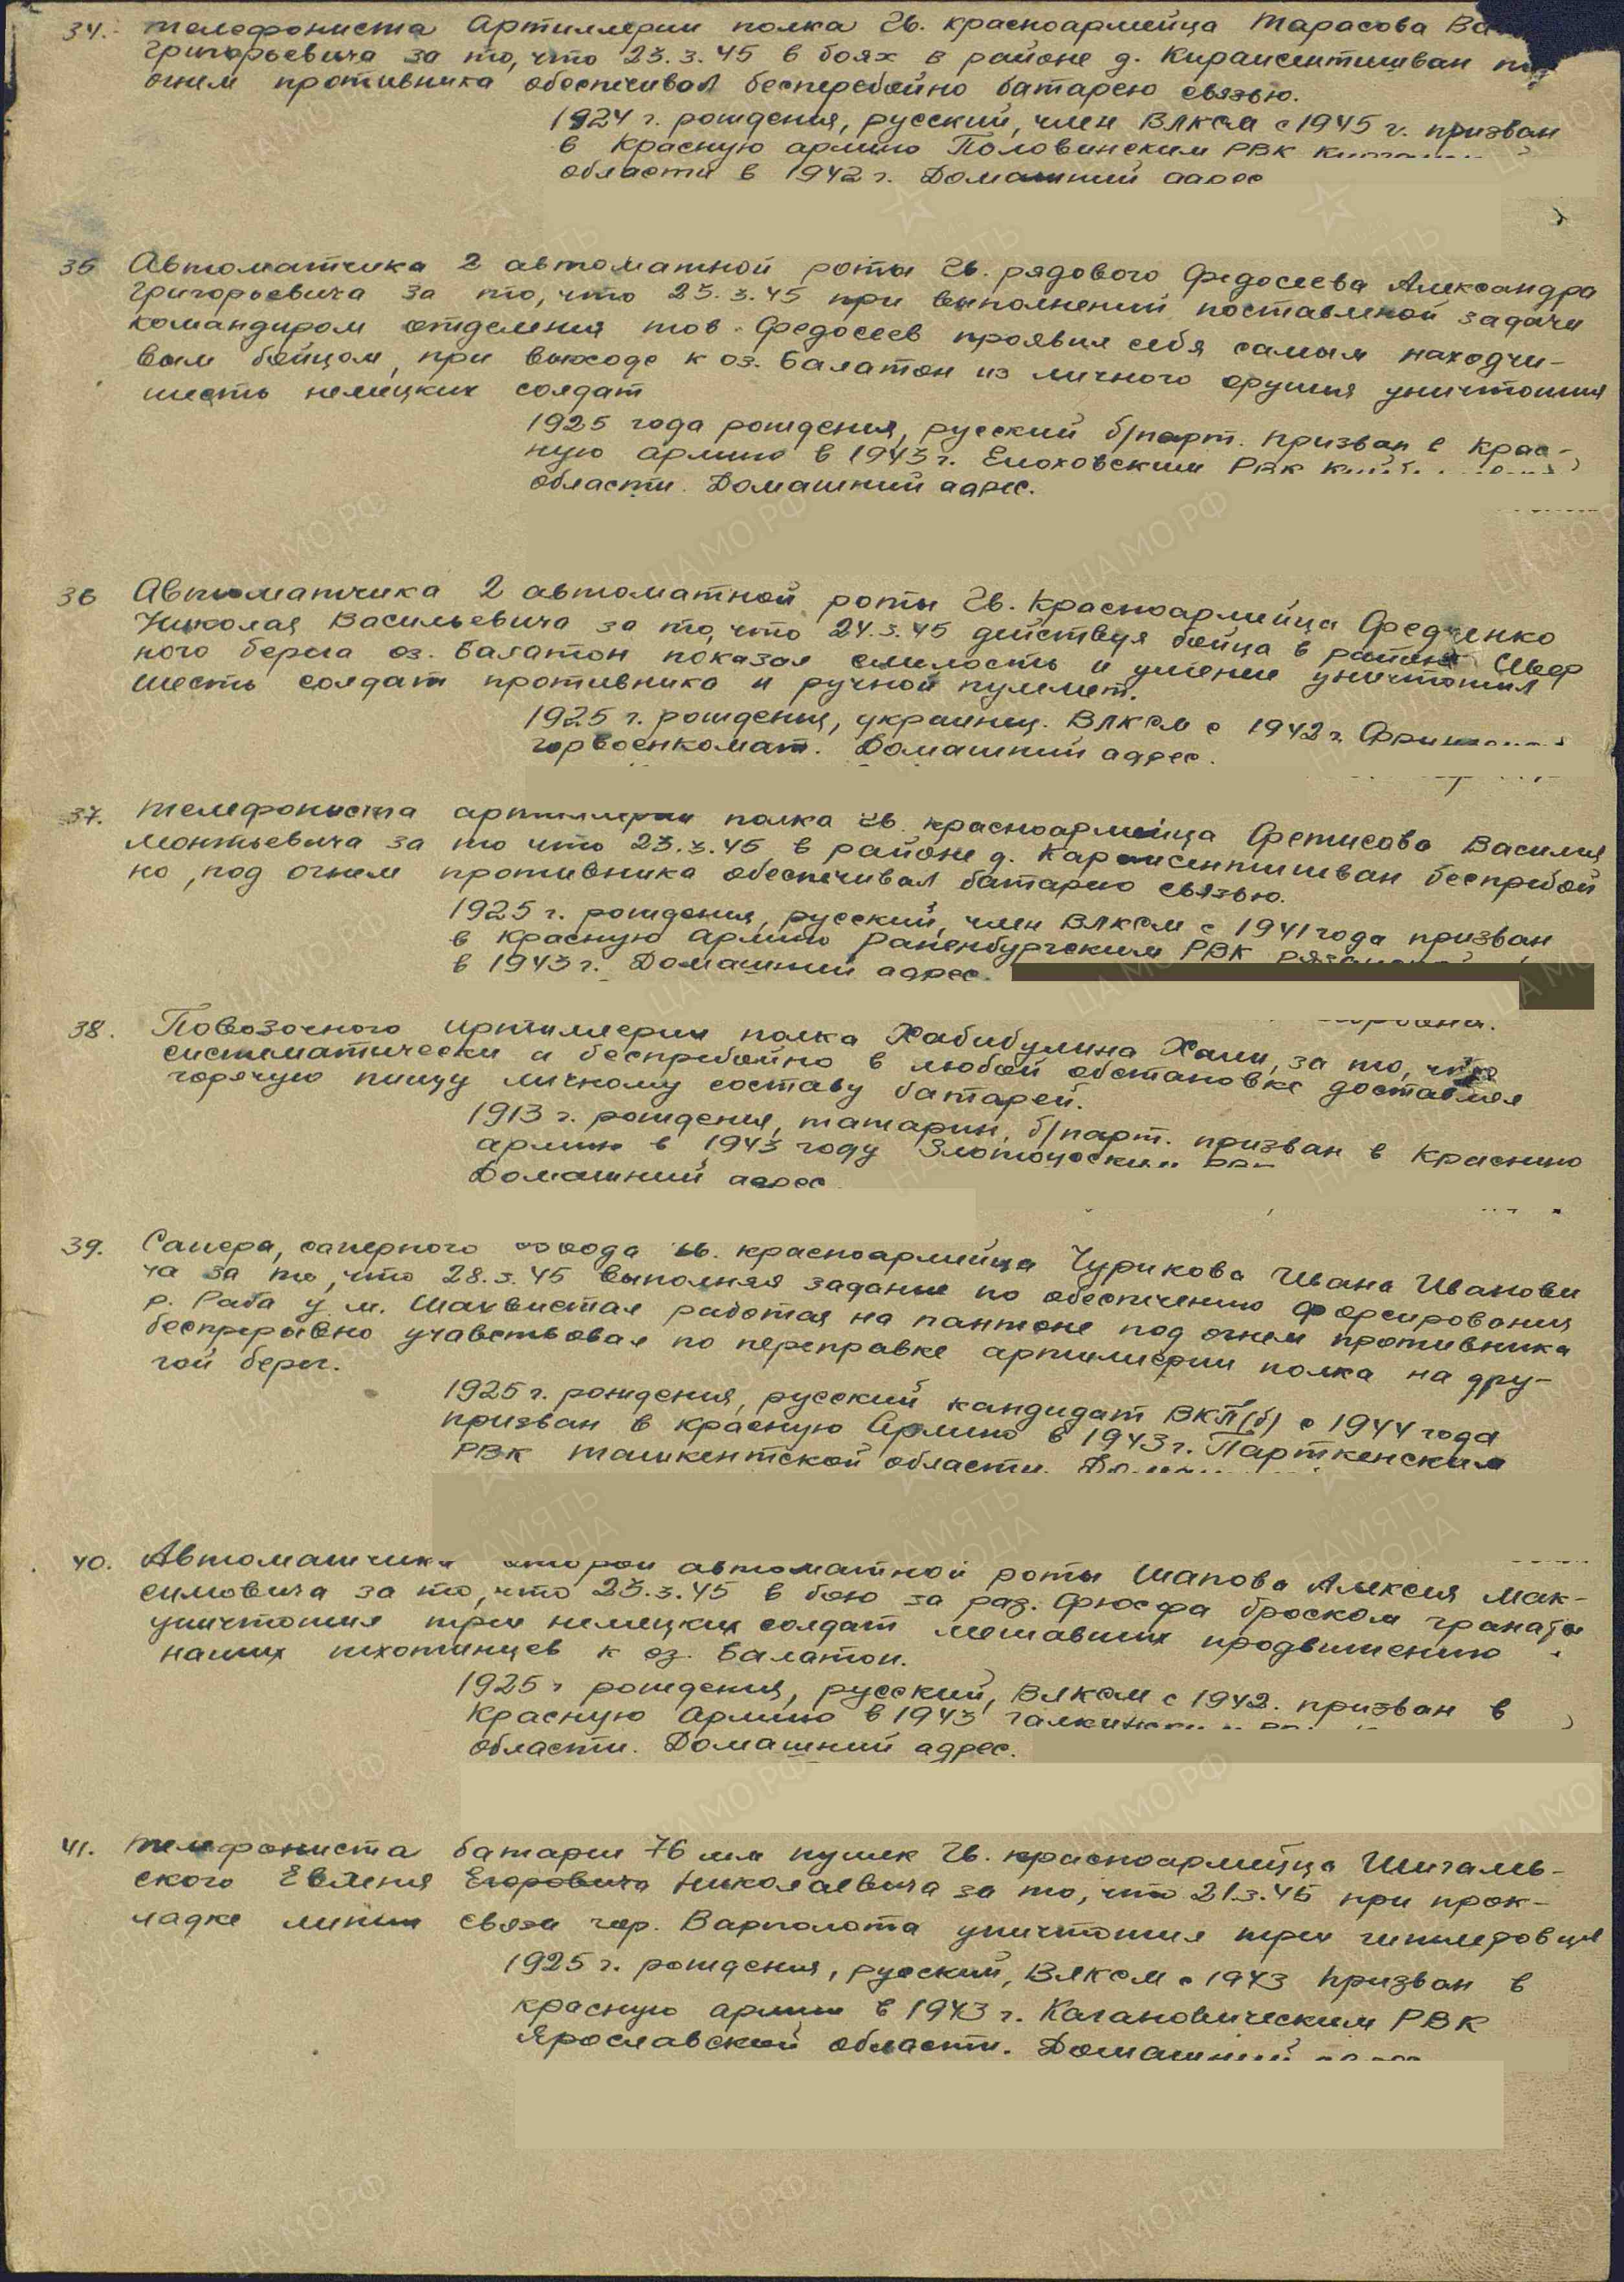 34. телефониста Артиллерии полка Гв. красноармейца Тарасова
Григорьевича за то, что 23.3.45 в боях в районе д. Кираисентишван
огнем противника обеспечивал бесперебойно батарею связью.
1924 г. рождения, русский, член ВЛКСМ с 1945 г. призван
в Красную армию Половинским РВК
области в 1942 г. Домашний адрес
35 Автоматчика 2 автоматной роты Гв. рядового Федосеева Александра
Григорьевича за то, что 23.3.45 при выполнений поставленой задачи
командиром отделения тов. Федосеев проявил себя самым находчи-
вым бойцом, при выходе к оз. Балатон из личного оружия уничтожил
шесть немецких солдат
1925 года рождения, русский б/парт. призван в Крас-
ную армию в 1943 г. Елоховским РВК
области. Домашний адрес.
36 Автоматчика 2 автоматной роты Гв. Красноармейца Федченко
Николая Васильевича за то, что 24.3.45 действуя бойца в районе Север
ного берега оз. Балатон показал смелость и умение уничтожил
шесть солдат противника и ручной пулемет.
1925 г. рождения, украинец. ВЛКСМ с 1942 г.
горвоенкомат. Домашний адрес.
37. телефониста артиллерии полка Гв. красноармейца Фетисова Василия
Монтьевича за то что 23.3.45 в районе д. Караисентишван беспребой
но, под огнем противника обеспечивал батарею связью.
1925 г. рождения, русский, член ВЛКСМ с 1941 года призван
в Красную Армию Раненбургским РВК
в 1943 г. Домашний адрес.
38. Повозочного Артиллерии полка Хабибулина Хали, за то, что
систематически и беспребойно в любой обстановке доставлял
горячую пищу личному составу батарей.
1913 г. рождения, татарин, б/парт. призван в Красную
армию в 1943 году
Домашний адрес.
39. Сапера, саперного взвода Гв. красноармейца Чурикова Ивана Иванови
ча за то, что 28.3.45 выполняя задание по обеспечению форсирования
р. Раба у м. работая на пантоне под огнем противника
беспрерывно учавствовал по переправке артиллерии полка на дру-
гой берег.
1925 г. рождения, русский кандидат ВКП(б) с 1944 года
призван в Красную Армию в 1943 г. Парткенским
РВК Ташкентской области.
40. Автоматчика второй автоматной роты Шапова Алексея Мак-
симовича за то, что 23.3.45 в бою за раз. Фюсфа броском гранаты
уничтожил три немецких солдат мешавших продвижению
наших пехотинцев к оз. Балатон.
1925 г рождения, русский, ВЛКСМ с 1942. призван в
Красную Армию в 1943
области. Домашний адрес.
41. телефониста батареи 76 мм пушек Гв. красноармейца Шигаль-
ского Евгения Егоровича Николаевича за то, что 21.3.45 при прок-
ладке линии связи гор. Варполота уничтожил три гитлеровца
1925 г. рождения, русский, ВЛКСМ с 1943 призван в
красную армию в 1943 г. Кагановическим РВК
Ярославской области. Домашний